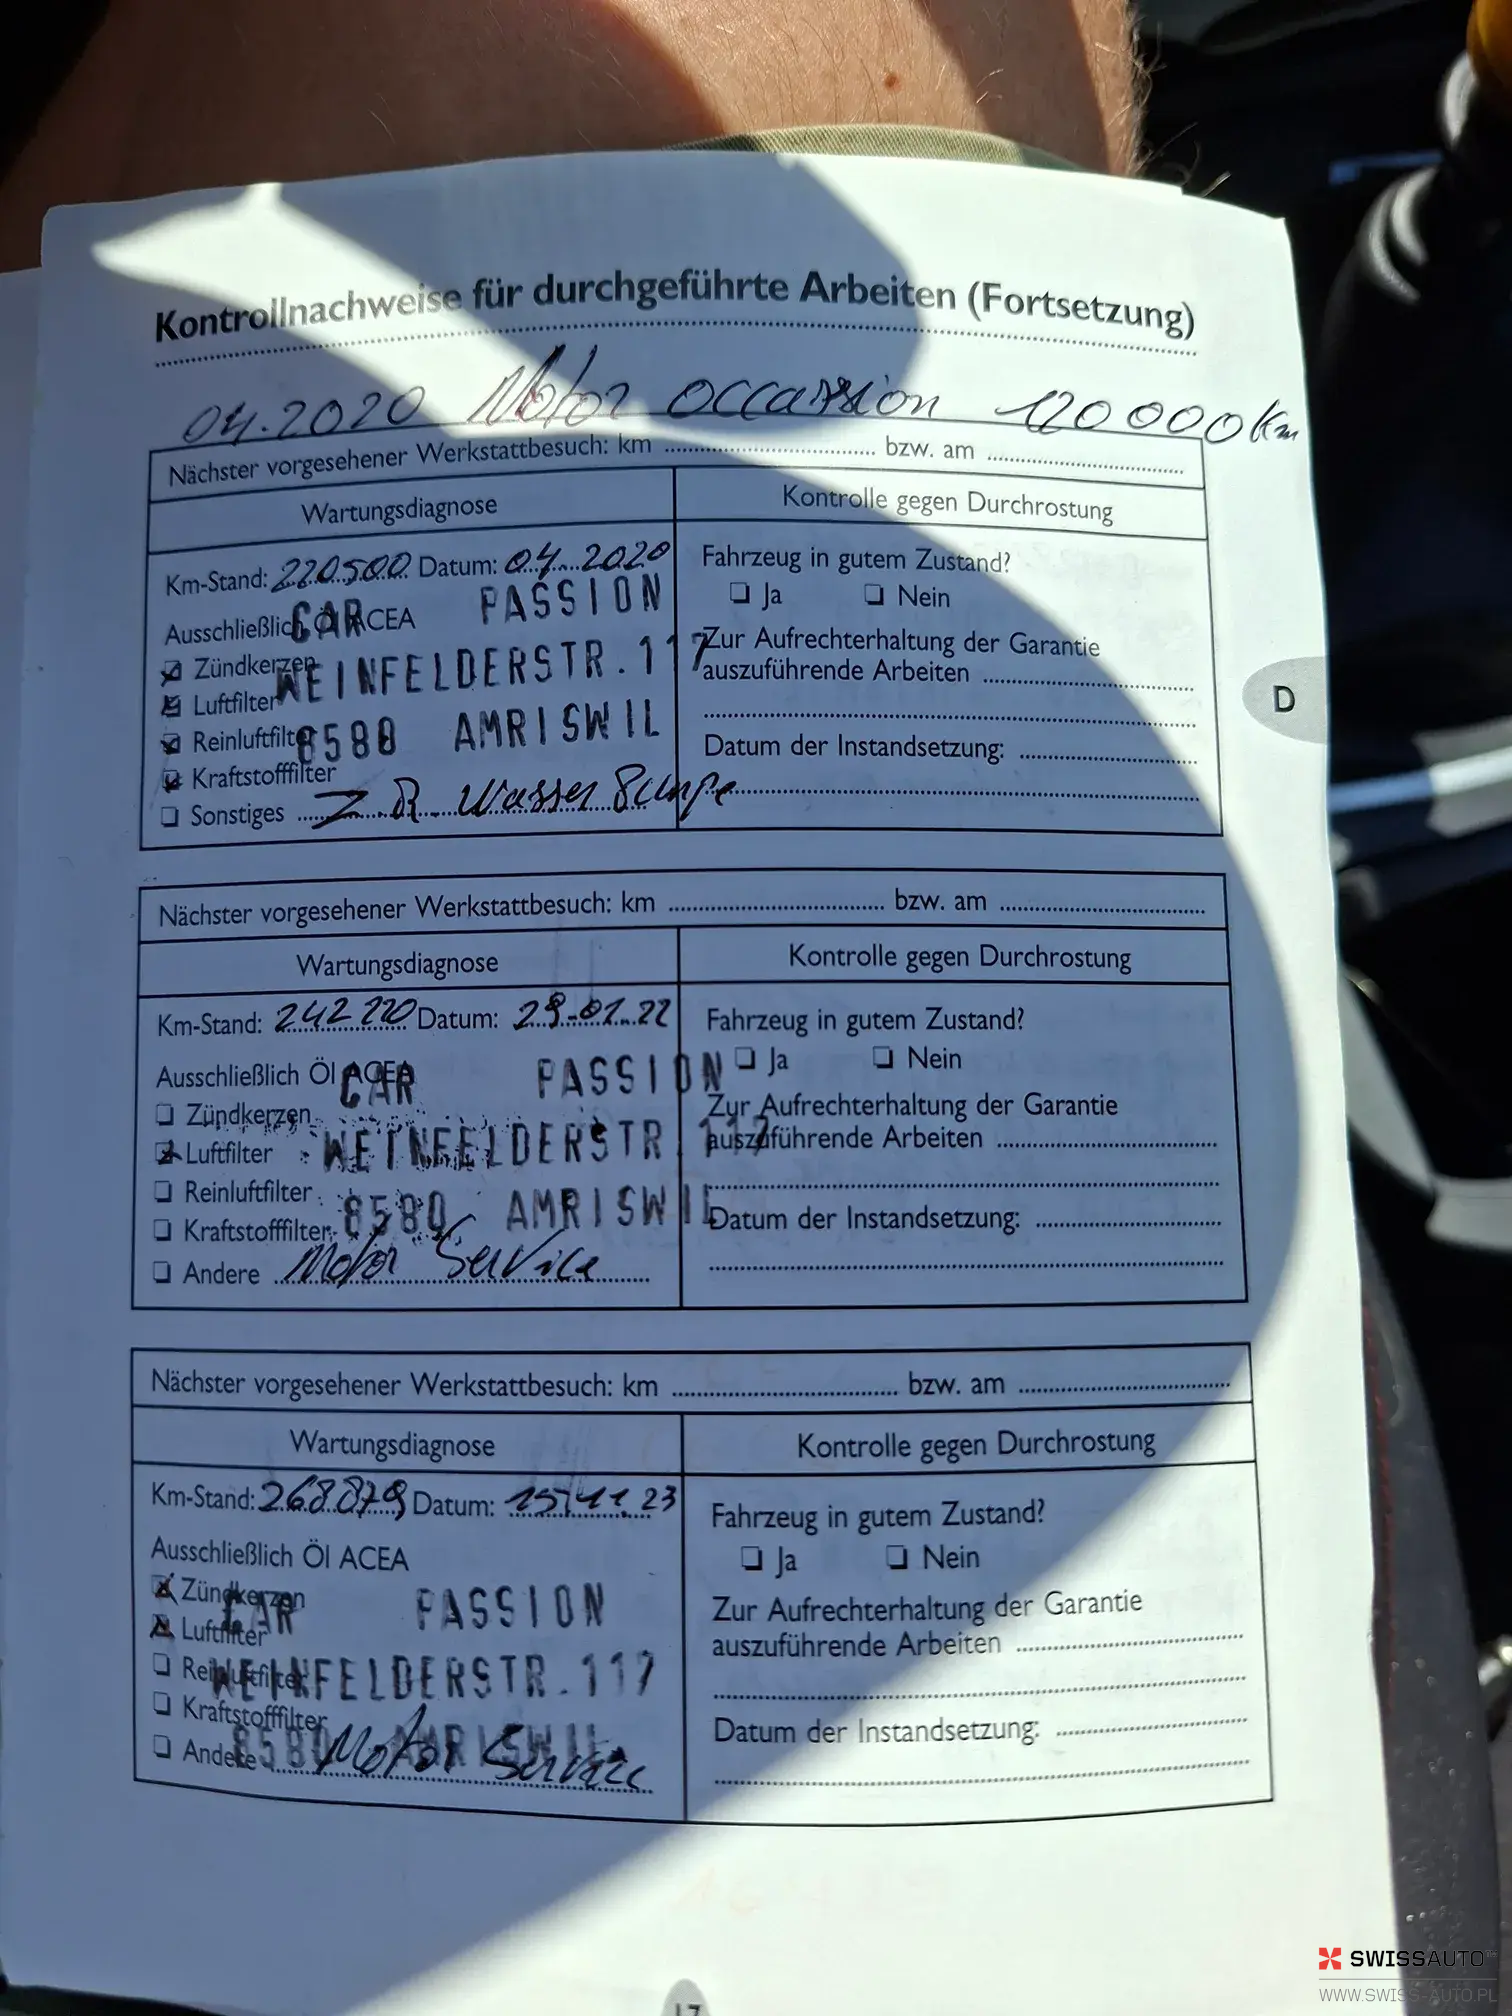 Kontrollnachweise für durchgeführte Arbeiten (Fortsetzung)
04.2020 Motor occassion 120000Km
Nächster vorgesehener Werkstattbesuch: km bzw. am
Wartungsdiagnose
Kontrolle gegen Durchrostung
Km-Stand: 220500 Datum: 04.2020
Fahrzeug in gutem Zustand?
CAR PASSION
Ausschließlich Öl ACEA
Ja Nein
Zündkerzen
WEINFELDERSTR. 117
Zur Aufrechterhaltung der Garantie
auszuführende Arbeiten
Luftfilter
Reinluftfilter
8580 AMRISWIL
Datum der Instandsetzung:
Kraftstofffilter
Sonstiges Z.R. Wasser Pumpe
D
Nächster vorgesehener Werkstattbesuch: km bzw. am
Wartungsdiagnose
Kontrolle gegen Durchrostung
Km-Stand: 242220 Datum: 29-01.22
Fahrzeug in gutem Zustand?
Ausschließlich Öl ACEA
CAR PASSION
Ja Nein
Zündkerzen
Zur Aufrechterhaltung der Garantie
auszuführende Arbeiten
Luftfilter
WEINFELDERSTR. 117
Reinluftfilter
8580 AMRISWIL
Datum der Instandsetzung:
Kraftstofffilter
Andere Motor Service
Nächster vorgesehener Werkstattbesuch: km bzw. am
Wartungsdiagnose
Kontrolle gegen Durchrostung
Km-Stand: 268879 Datum: 15.11.23
Fahrzeug in gutem Zustand?
Ausschließlich Öl ACEA
Ja Nein
Zündkerzen
CAR PASSION
Zur Aufrechterhaltung der Garantie
auszuführende Arbeiten
Luftfilter
Reinluftfilter
WEINFELDERSTR. 117
Kraftstofffilter
Datum der Instandsetzung:
8580 AMRISWIL
Andere Motor Service
17
SWISSAUTO
WWW.SWISS-AUTO.PL